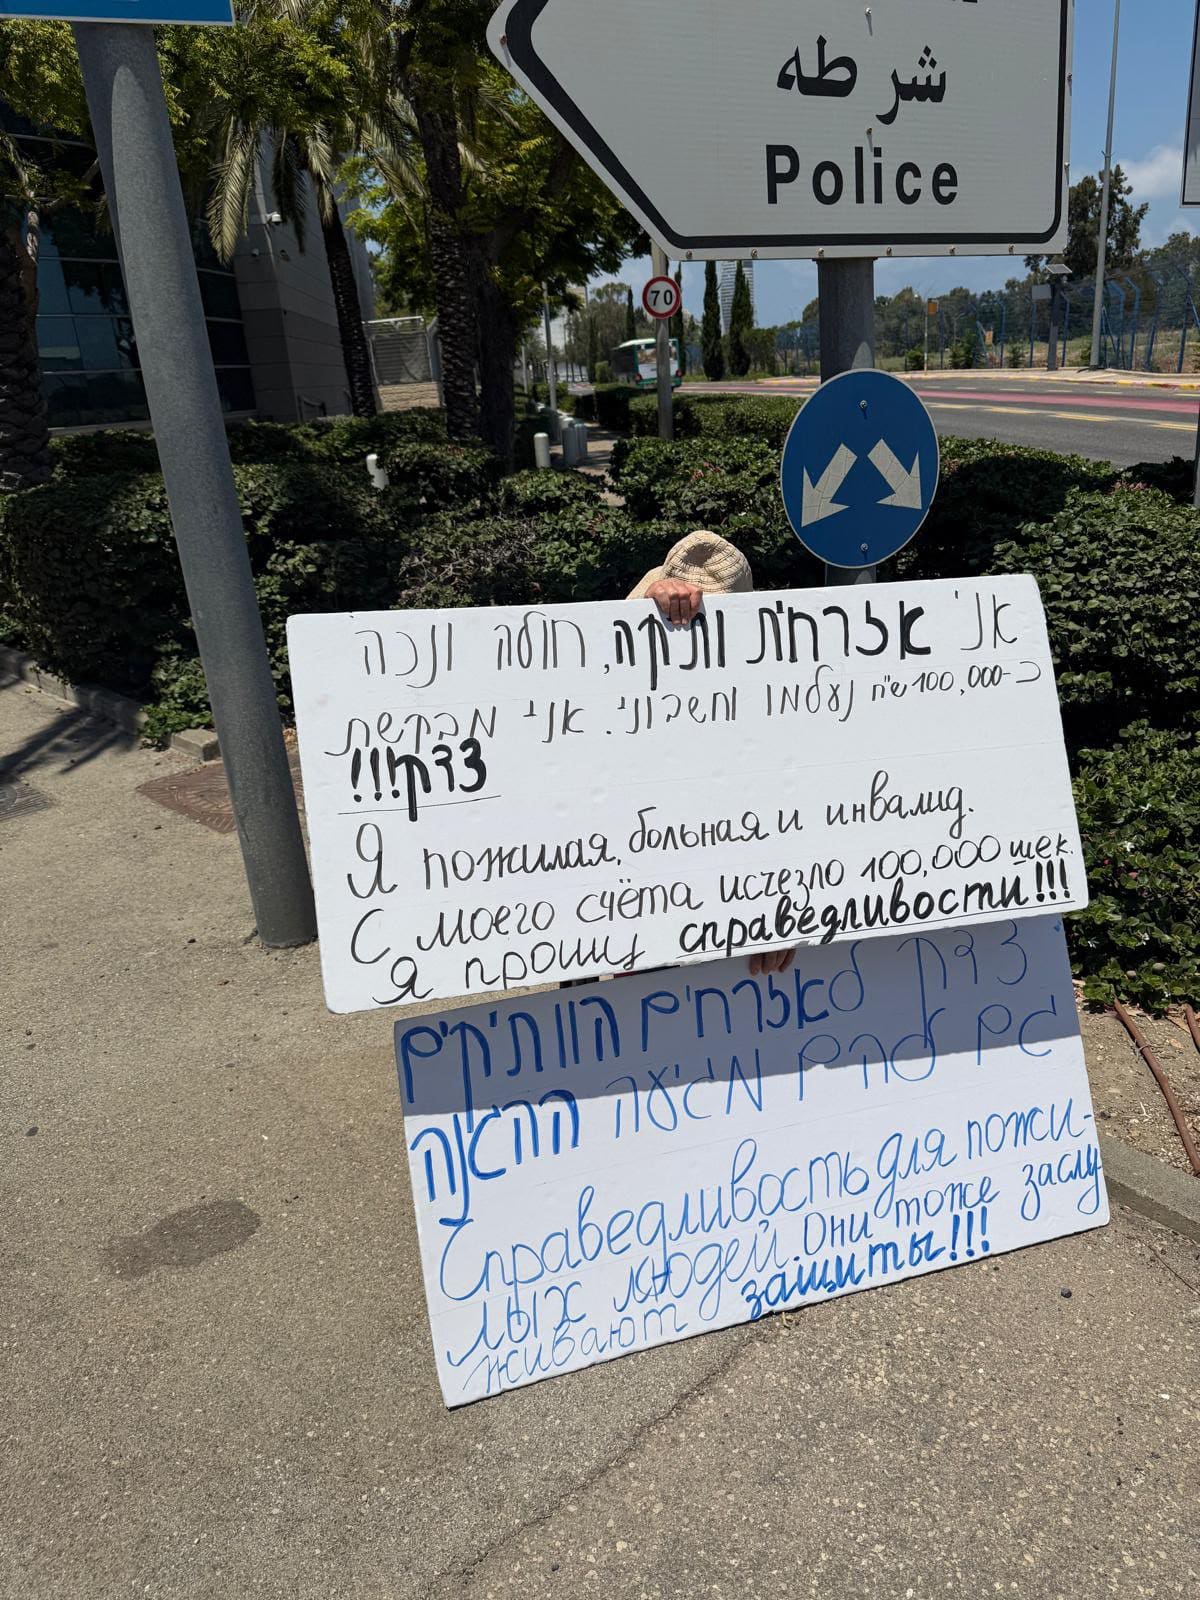 شرطه
Police
70
אני אזרחית ותיקה, חולה ונכה
כ-100,000 ש"ח נעלמו וחשבוני. אני מבקשת
צדק!!!
Я пожилая, больная и инвалид.
С моего счёта исчезло 100,000 шек.
Я прошу справедливости!!!
צדק לאזרחים הוותיקים
גם להם מגיעה ההגנה
Справедливость для пожи-
лых людей. Они тоже заслу
живают защиты!!!